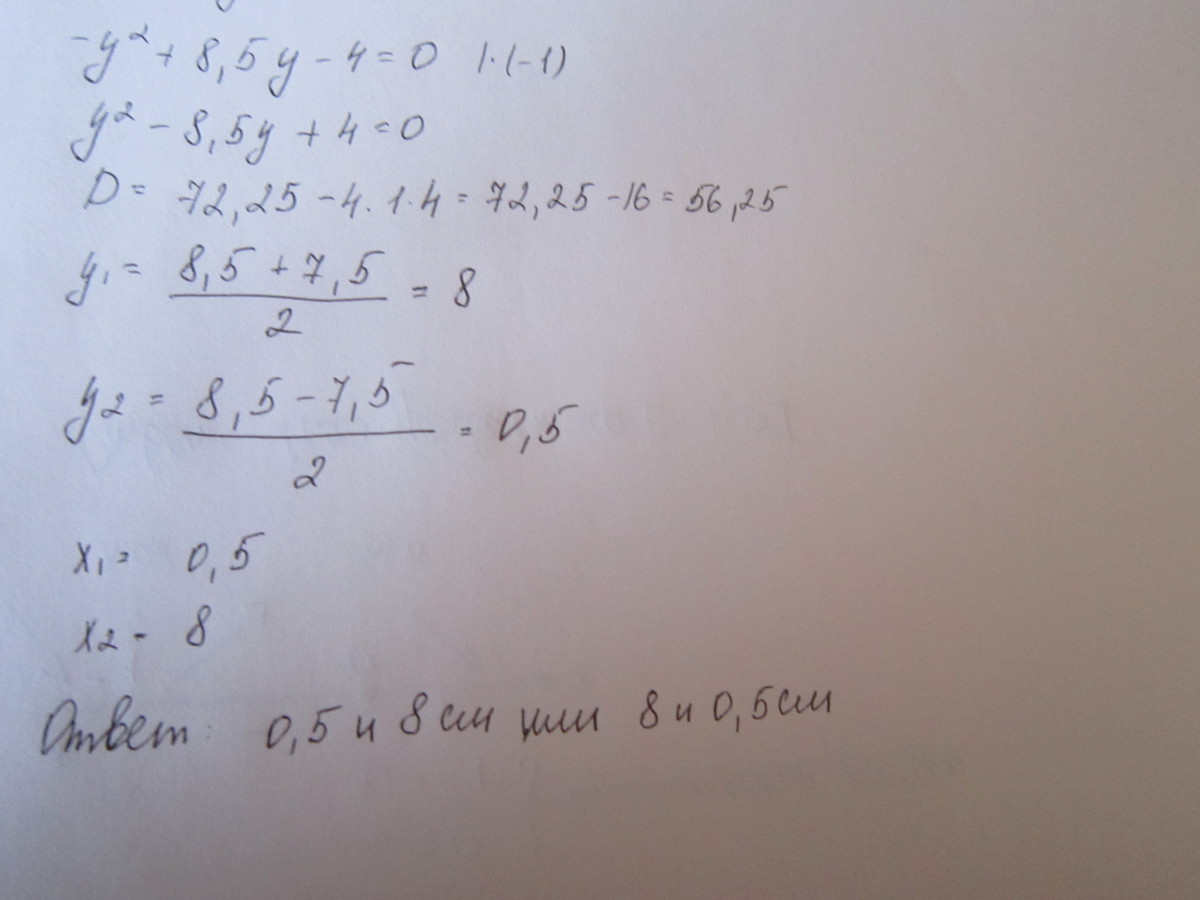 -y² + 8,5y - 4 = 0 |·(-1)
y² - 8,5y + 4 = 0
D = 72,25 - 4·1·4 = 72,25 - 16 = 56,25
y₁ = (8,5 + 7,5)/2 = 8
y₂ = (8,5 - 7,5)/2 = 0,5
x₁ = 0,5
x₂ - 8
Ответ: 0,5 и 8 см или 8 и 0,5 см